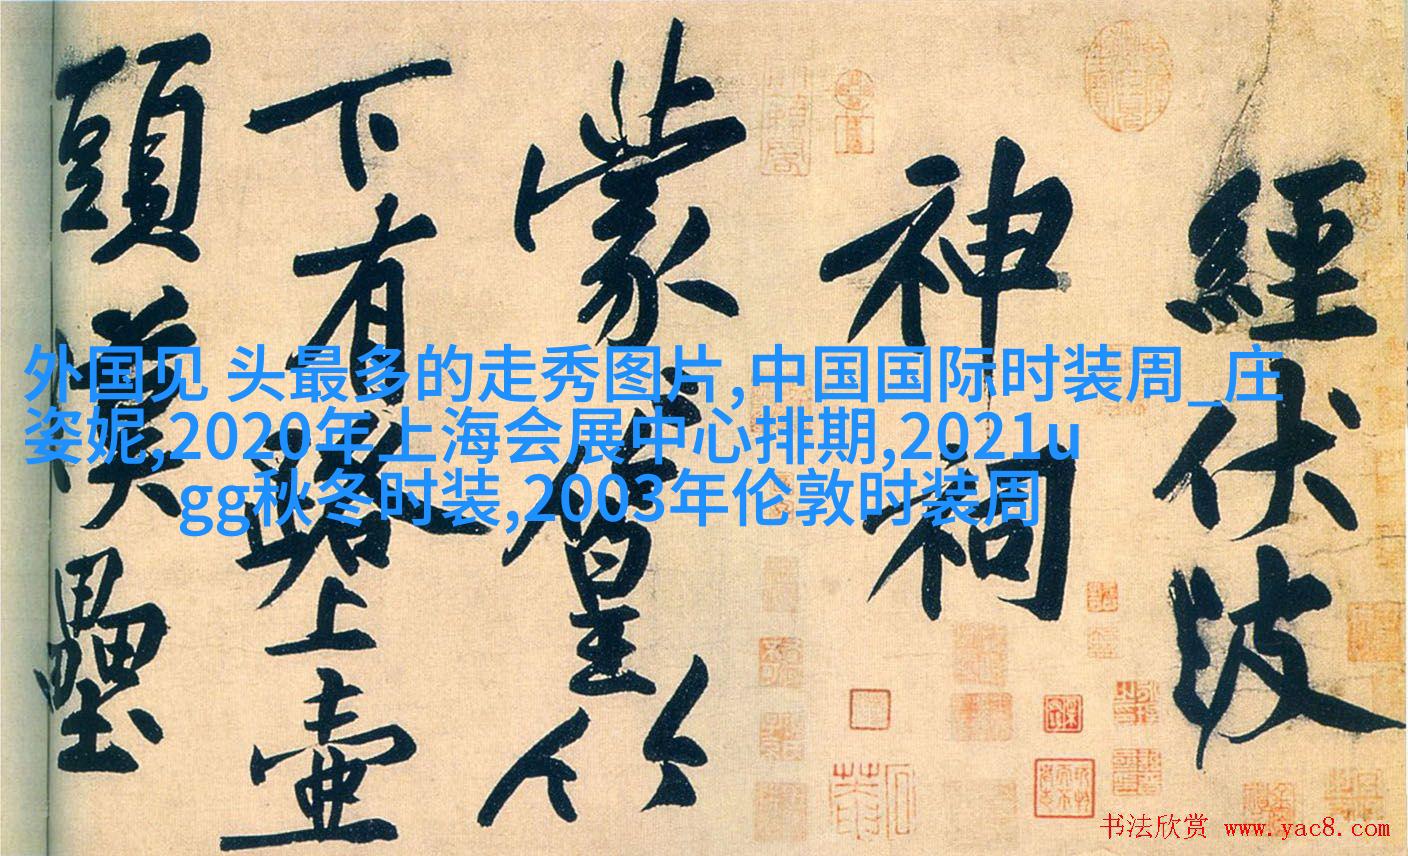 經伏波
神祠
蒙篁竹
下有路上壺
頭漢壘
外国见 头最多的走秀图片,中国国际时装周_庄
姿妮,2020年上海会展中心排期,2021u
gg秋冬时装,2003年伦敦时装周
书法欣赏 www.yac8.com